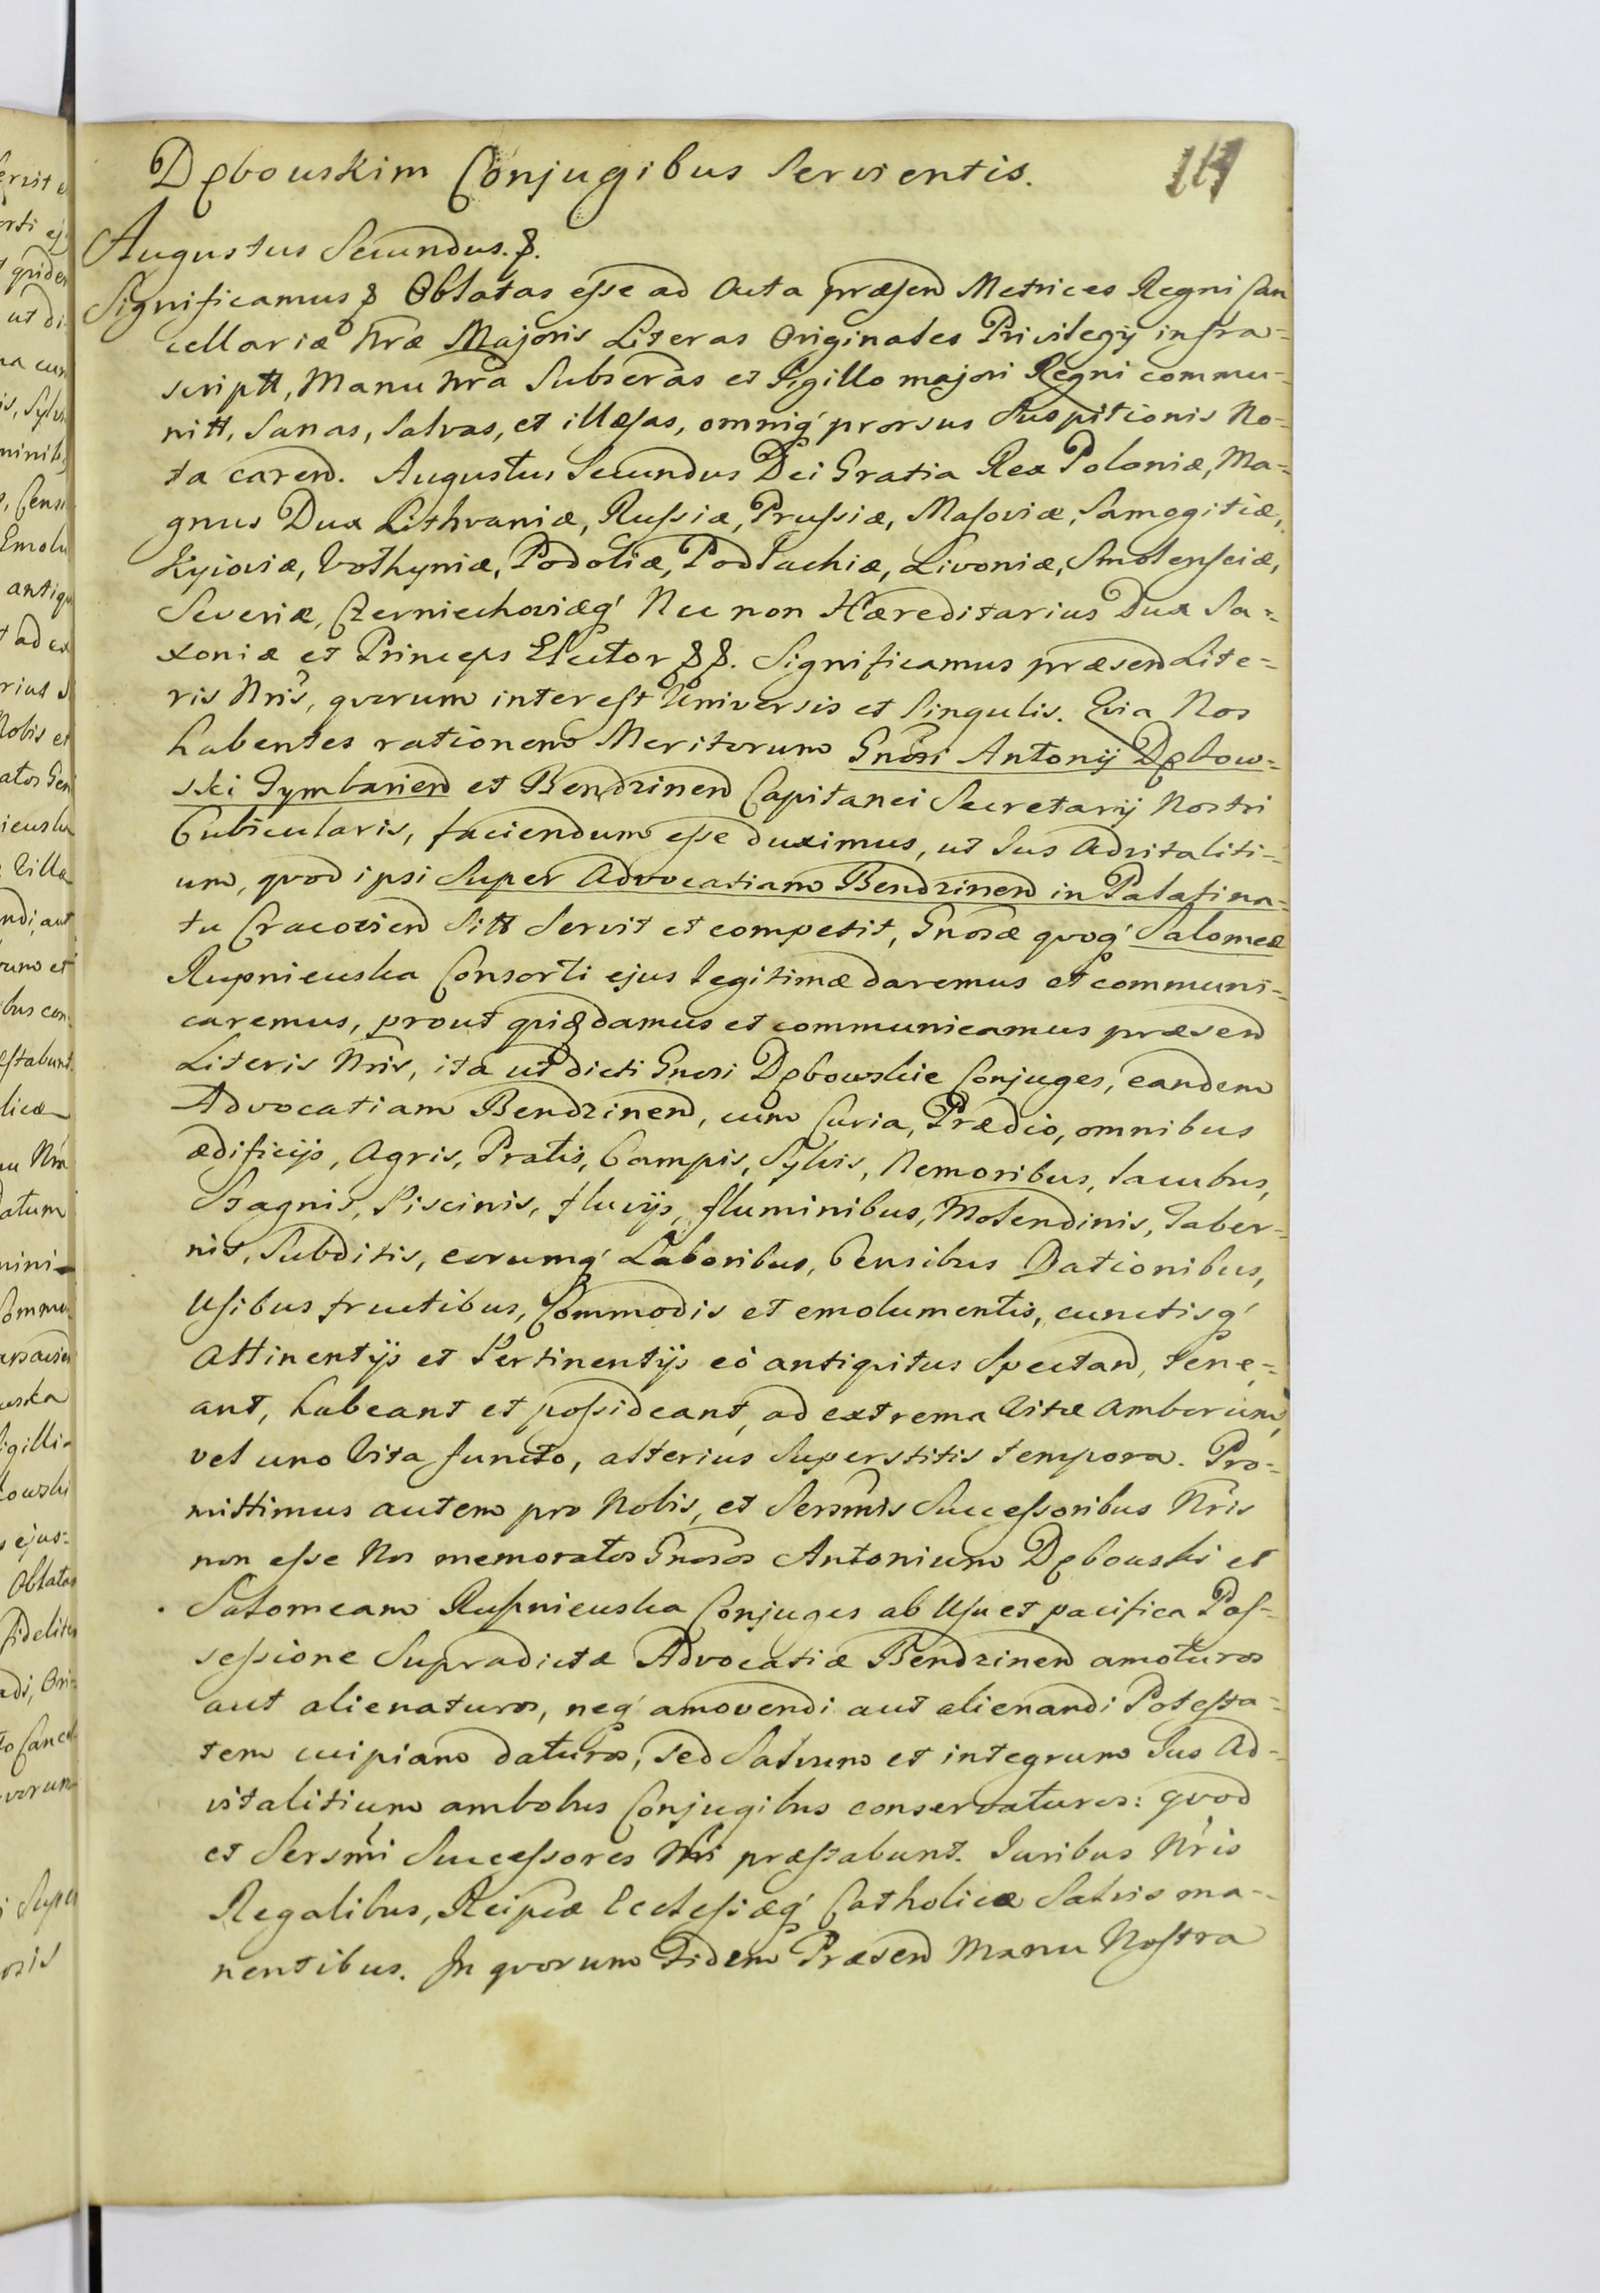 Dębowskim Conjugibus Servientis.
117
Augustus Secundus. &.
Significamus & Oblatas esse ad Acta præsen Metrices Regni Can
cellariæ Nræ Majoris Literas Originales Privilegÿ infra-
scriptt, Manu Nra Subscras et Sigillo majori Regni commu-
nitt, Sanas, Salvas, et illæsas, omniq' prorsus Suspitionis No-
ta caren. Augustus Secundus Dei Gratia Rex Poloniæ, Ma-
gnus Dux Lithvaniæ, Russiæ, Prussiæ, Masoviæ, Samogitiæ,
Kyioviæ, Volhyniæ, Podoliæ, Podlachiæ, Livoniæ, Smolensciæ,
Severiæ, Czerniechoviæq' Nec non Hæreditarius Dux Sa=
xoniæ et Princeps Elector &&. Significamus præsen Lite=
ris Nris, qvorum interest Universis et Singulis. Qvia Nos
habentes rationem Meritorum Gnosi Antonÿ Dębow=
ski Tymbarien et Bendzinen Capitanei Secretarÿ Nostri
Cubicularis, faciendum esse duximus, ut Jus Advitaliti-
um, qvod ipsi Super Advocatiam Bendzinen in Palatina-
tu Cracovien Sitt Servit et competit, Gnosæ qvoq' Salomeæ
Rupniewska Consorti ejus legitimæ daremus et communi-
caremus, prout qvidę damus et communicamus præsen
Literis Nris, ita ut dicti Gnosi Dębowskie Conjuges, eandem
Advocatiam Bendzinen, cum Curia, Prædio, omnibus
ædificÿs, Agris, Pratis, Campis, Sylvis, Nemoribus, Lacubus,
Stagnis, Piscinis, fluvÿs, fluminibus, Molendinis, Taber-
nis, Subditis, eorumq' Laboribus, Censibus Dationibus,
Usibus fructibus, Commodis et emolumentis, cunctisq'
Attinentÿs et Pertinentÿs eò antiqvitus Spectan, tene-
ant, habeant et possideant, ad extrema Vitæ Amborum,
vel uno Vita functo, alterius Superstitis tempora. Pro-
mittimus autem pro Nobis, et Sersmis Successoribus Nris
non esse Nos memoratos Gnosos Antonium Dębowski et
Salomeam Rupniewska Conjuges ab Usu et pacifica Pos-
sessione Supradictæ Advocatiæ Bendzinen amoturos
aut alienaturos, neq' amovendi aut alienandi Potesta-
tem cuipiam daturos, Sed Salvum et integrum Jus Ad-
vitalitium ambobus Conjugibus conservaturos: qvod
et Sersmi Successores Nri præstabunt. Juribus Nris
Regalibus, Reipcæ Ecclesiæq' Catholicæ Salvis ma-
nentibus. In qvorum Fidem Præsen Manu Nostra